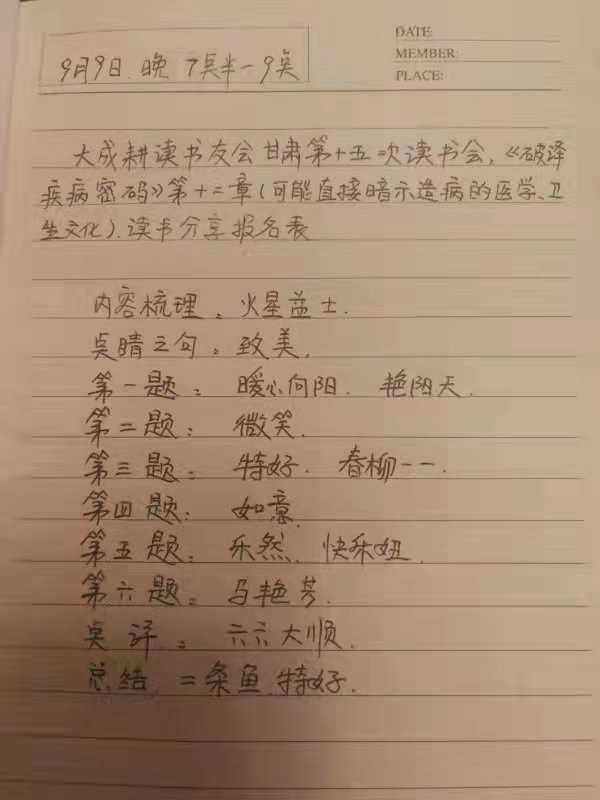 DATE:
MEMBER:
PLACE:
9月9日.晚 7点半一9点
大成耕读书友会甘肃第十五次读书会,《破译
疾病密码》第十二章(可能直接暗示造病的医学、卫
生文化).读书分享报名表
内容梳理:火星益士.
点睛之句:致美.
第一题: 暖心向阳. 艳阳天.
第二题: 微笑.
第三题: 特好. 春柳一一.
第四题: 如意.
第五题: 乐然. 快乐妞.
第六题: 马艳芳.
点评: 六六大顺.
总结: 鱼.特好.